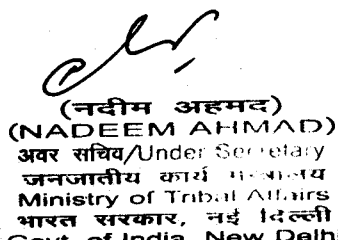 (नदीम अहमद)
(NADEEM AHMAD)
अवर सचिव/Under Secretary
जनजातीय कार्य मंत्रालय
Ministry of Tribal Affairs
भारत सरकार, नई दिल्ली
Govt. of India, New Delhi